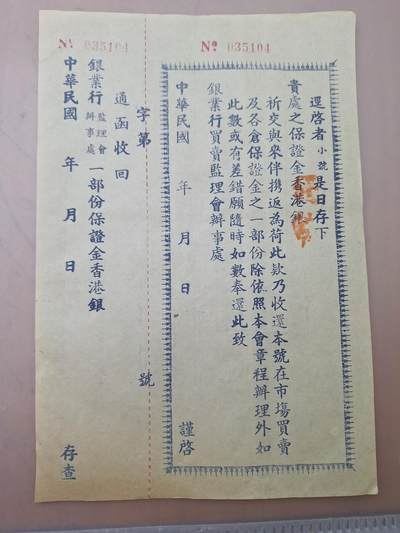 № 035104
逕啓者小號是日存下
貴處之保證金香港銀
祈交與來伴携返為荷此欵乃收還本號在市塲買賣
及各倉保證金之一部份除依照本會章程辦理外如
此數或有差錯願隨時如數奉還此致
銀業行買賣監理會辦事處
中華民國 年 月 日 謹啓
字第 號
№ 035104
通函收回
銀業行監理會辦事處一部份保證金香港銀
中華民國 年 月 日 存查